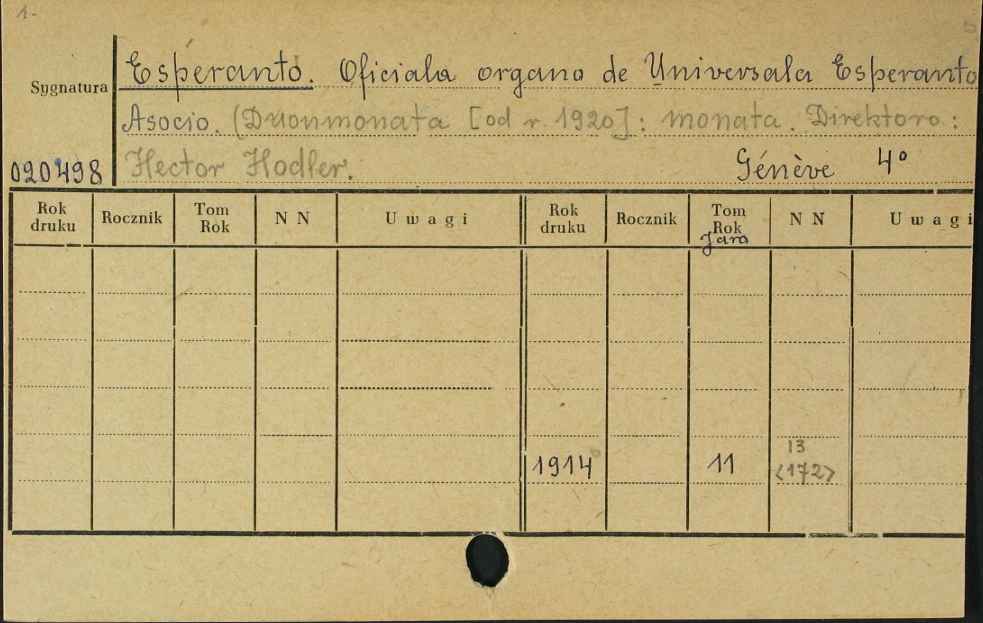 1.
Esperanto. Oficiala organo de Universala Esperanto
Sygnatura
Asocio. (Duonmonata [od r. 1920]: monata. Direktoro:
020498 Hector Hodler. Génève 4°
Rok druku Rocznik Tom Rok N N Uwagi Rok druku Rocznik Tom Rok Jaro N N Uwagi
13
1914 11 <172>